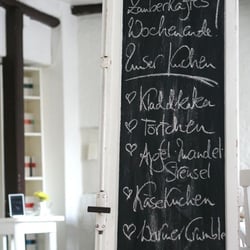 Zauberhaftes
Wochenende!
Unser Kuchen
Kladdkaka
Törtchen
Apfel Mandel
Streusel
Käsekuchen
Warmer Crumble